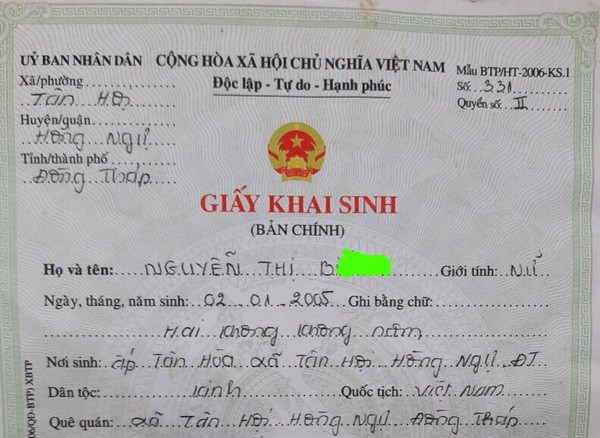 ỦY BAN NHÂN DÂN CỘNG HÒA XÃ HỘI CHỦ NGHĨA VIỆT NAM Mẫu BTP/HT-2006-KS.1
Xã/phường Độc lập - Tự do - Hạnh phúc Số: 331
Tân Hội Quyển số: II
Huyện/quận
Hồng Ngự
Tỉnh/thành phố
Đồng Tháp
GIẤY KHAI SINH
(BẢN CHÍNH)
Họ và tên: NGUYỄN THỊ Giới tính: Nữ
Ngày, tháng, năm sinh: 02-01-2005 Ghi bằng chữ:
Hai không không năm
Nơi sinh: ấp Tân Hòa xã Tân Hội Hồng Ngự ĐT
Dân tộc: Kinh Quốc tịch: Việt Nam
Quê quán: xã Tân Hội Hồng Ngự Đồng Tháp
06/QĐ-BTP) XBTP